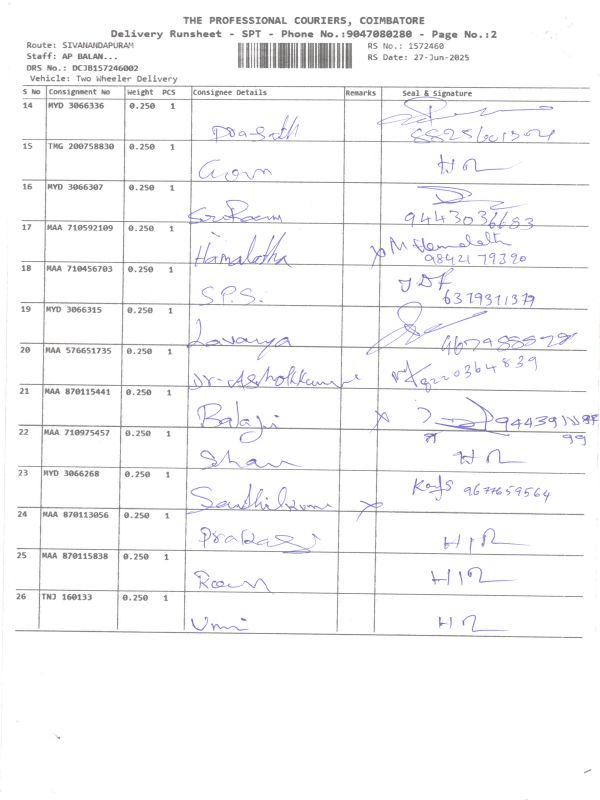 THE PROFESSIONAL COURIERS, COIMBATORE
Delivery Runsheet - SPT - Phone No.:9047080280 - Page No.:2
Route: SIVANANDAPURAM
RS No.: 1572460
Staff: AP BALAN...
RS Date: 27-Jun-2025
DRS No.: DCJB157246002
Vehicle: Two Wheeler Delivery
S No Consignment No Weight PCS Consignee Details Remarks Seal & Signature
14 MYD 3066336 0.250 1
15 TMG 200758830 0.250 1
16 MYD 3066307 0.250 1 SriRam
9443036683
17 MAA 710592109 0.250 1 Hamalatha M Hemalath
98421 79390
18 MAA 710456703 0.250 1 S.P.S.
6379371379
19 MYD 3066315 0.250 1 Lavanya
20 MAA 576651735 0.250 1 Dr. Ashokkumar
21 MAA 870115441 0.250 1 Balaji
99
22 MAA 710975457 0.250 1
23 MYD 3066268 0.250 1 9677659564
24 MAA 870113056 0.250 1
25 MAA 870115838 0.250 1 Ram
26 TNJ 160133 0.250 1